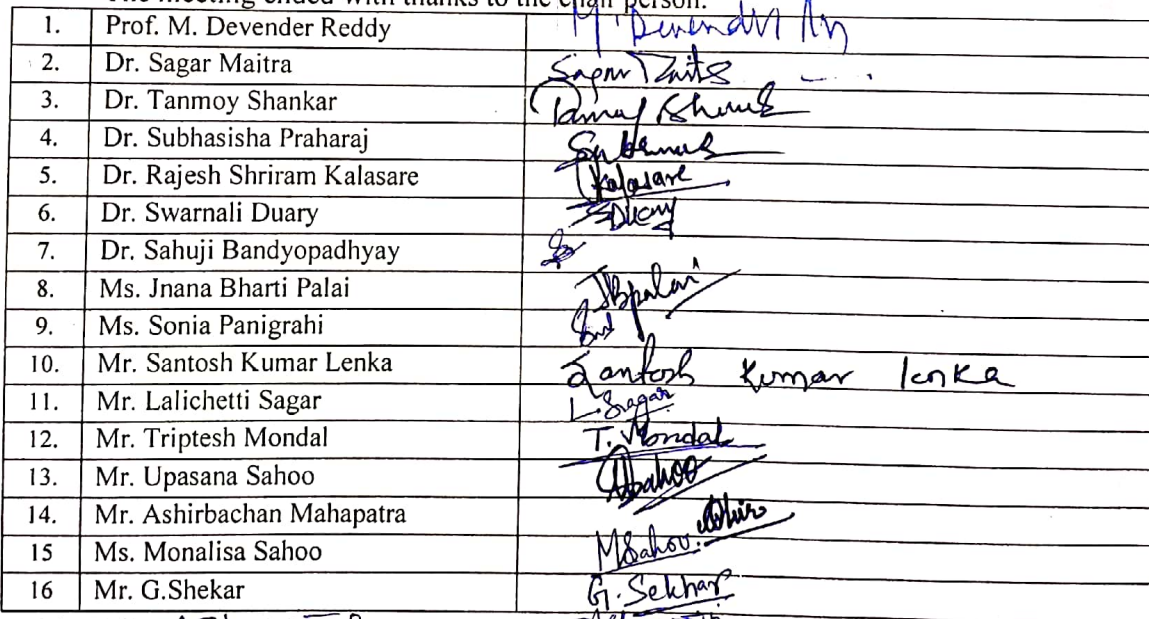 The meeting ended with thanks to the chair person.
1. Prof. M. Devender Reddy M. Devender
2. Dr. Sagar Maitra Sagar Maitra
3. Dr. Tanmoy Shankar
4. Dr. Subhasisha Praharaj
5. Dr. Rajesh Shriram Kalasare Kalasare
6. Dr. Swarnali Duary SDuary
7. Dr. Sahuji Bandyopadhyay
8. Ms. Jnana Bharti Palai JBpalai
9. Ms. Sonia Panigrahi
10. Mr. Santosh Kumar Lenka Santosh Kumar lenka
11. Mr. Lalichetti Sagar L. Sagar
12. Mr. Triptesh Mondal T. Mondal
13. Mr. Upasana Sahoo USahoo
14. Mr. Ashirbachan Mahapatra
15 Ms. Monalisa Sahoo MSahoo
16 Mr. G.Shekar G. Sekhar